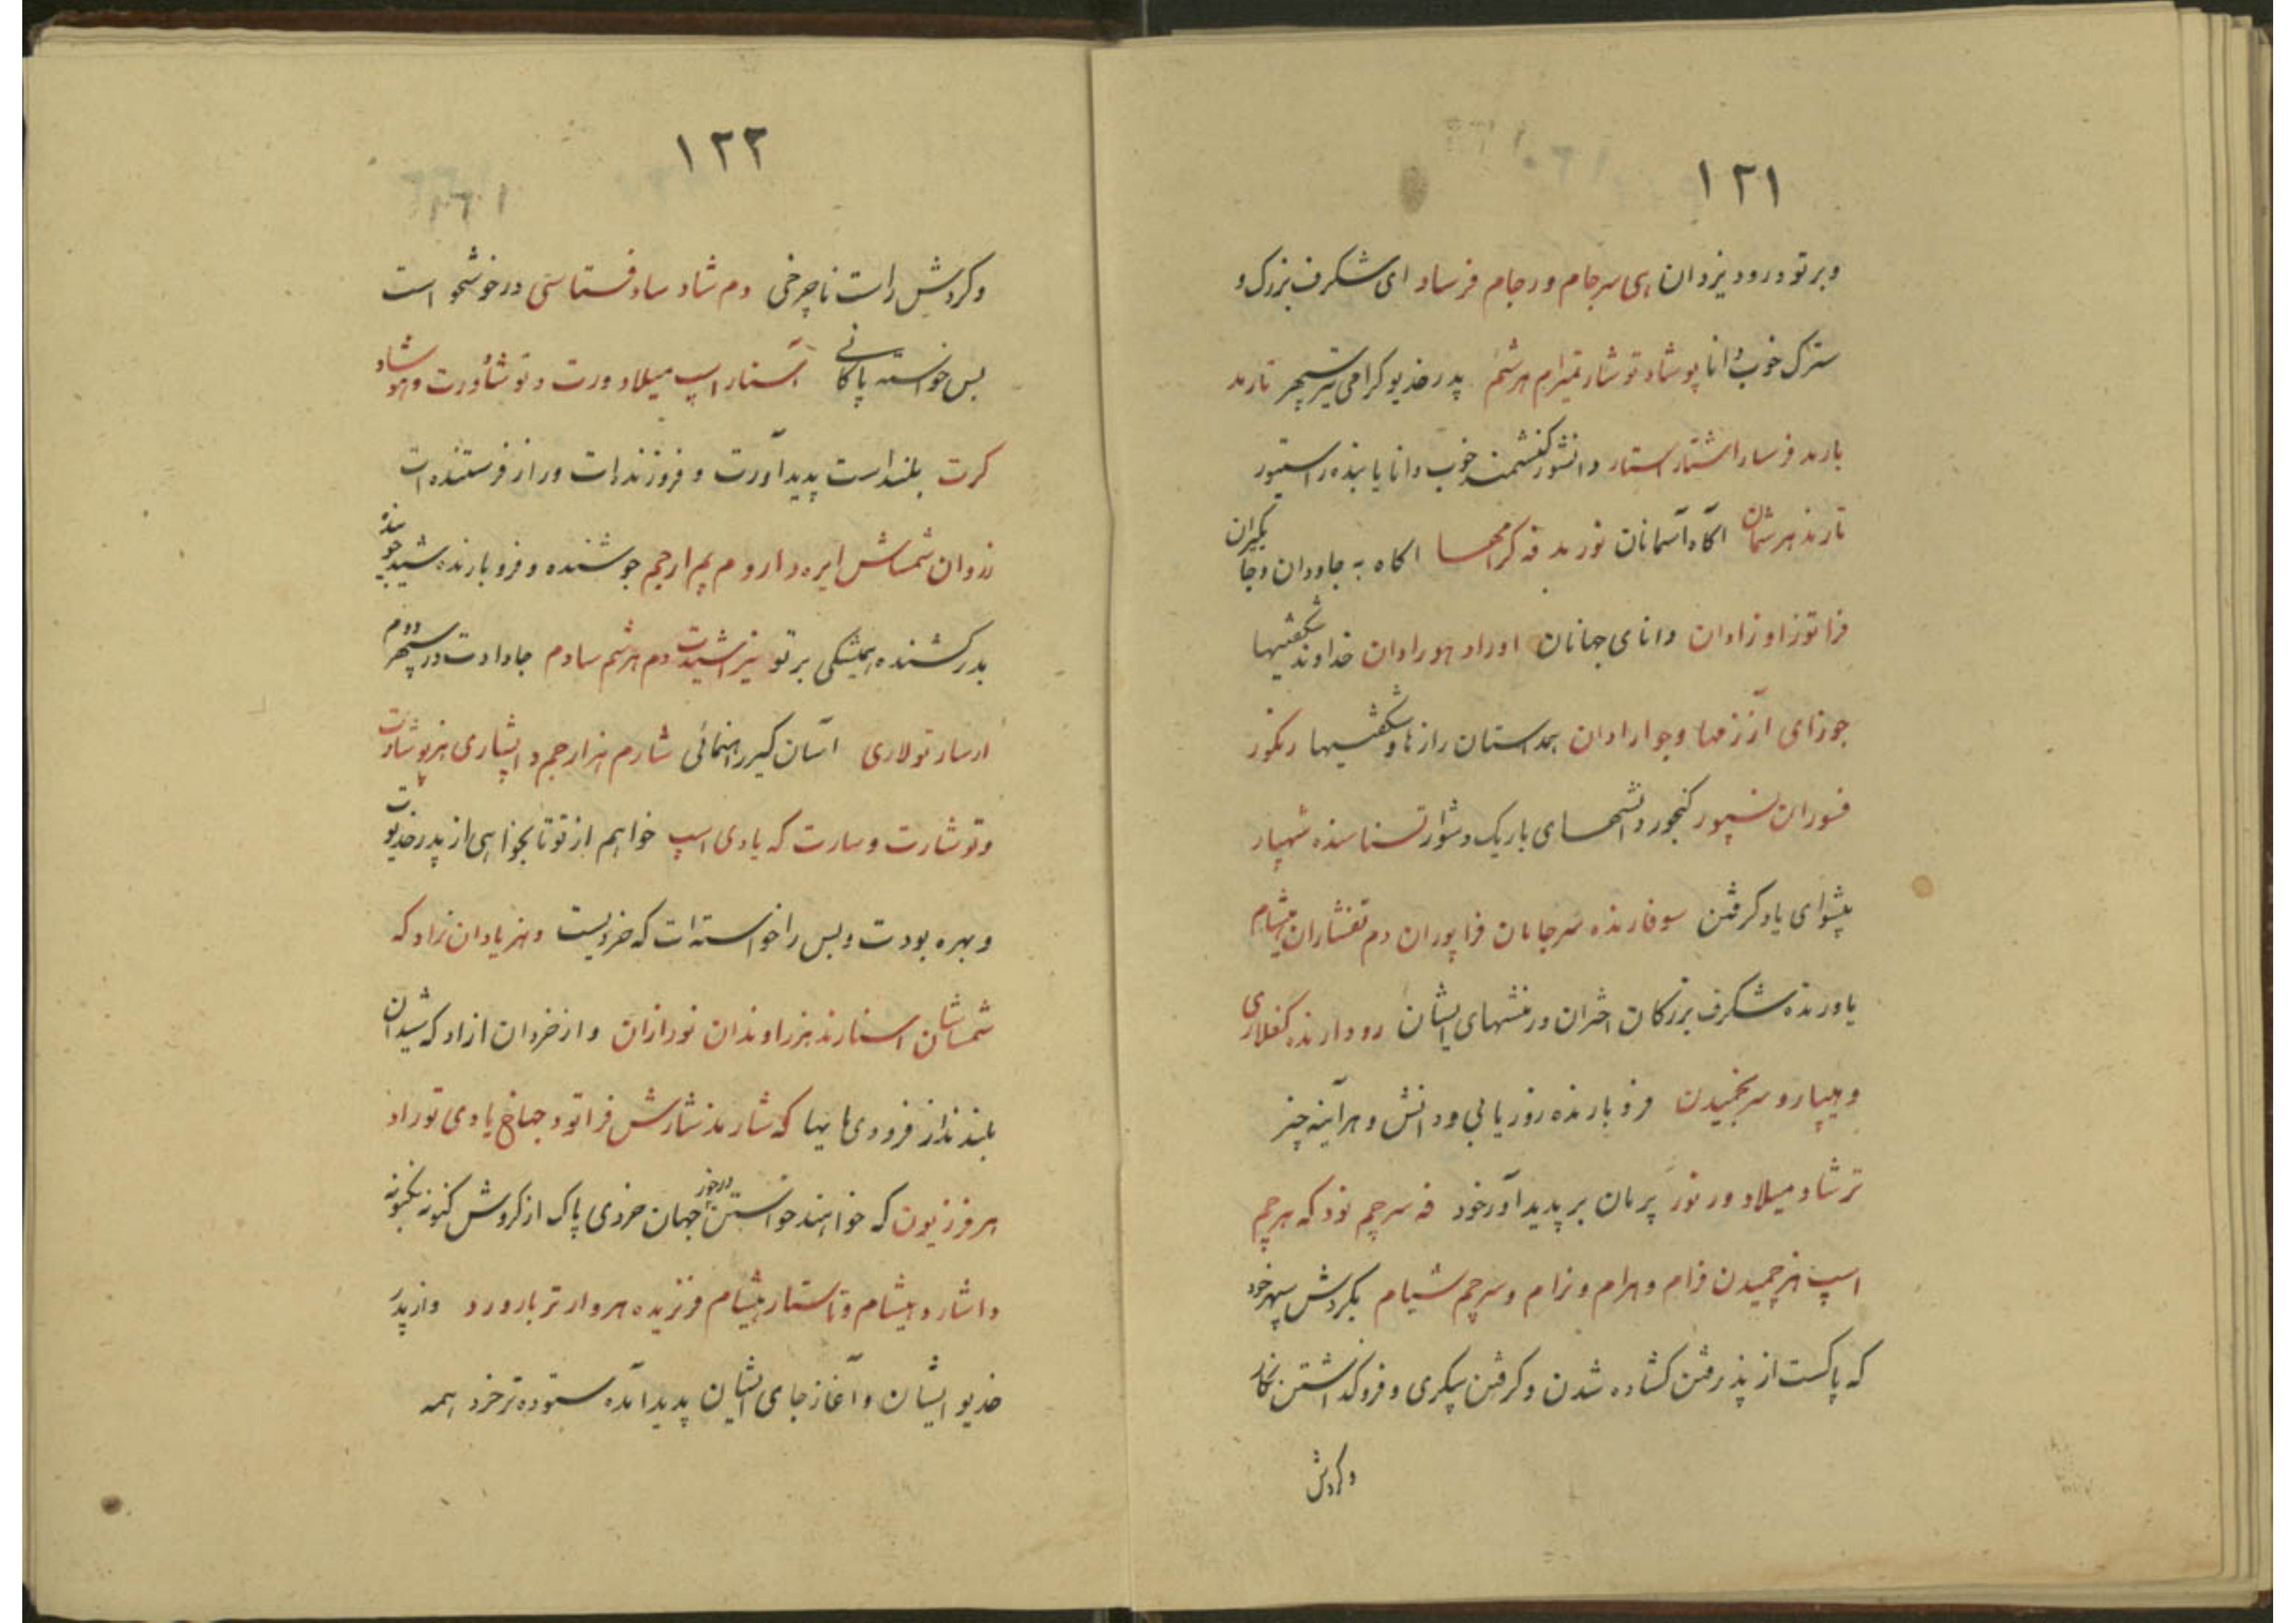 ١٢١
وبرتو درود یزدان هی سرجام ورجام فرساد ای شکرف بزرک و
سترک خوب دانا پوشاد توشار تمیرام هرشم پدر خدیو کرامی تیر سپهر تارمد
بارمد فرسار اشتار استار دانشور کنشمند خوب دانا یابنده راستور
تارند هرشمان آکاه آسمانان نورمد فه کرامها اکاه به جاودان وجا یکیران
فراتوز اوزادان دانای جهانان اوراد هورادان خداوند شکفتیها
جوزای آزرمها وجوارادان همداستان رازها وشکفتیها رنکور
فسوران نسپور کنجور دانشهای باریک دشوار شناسنده شهپار
پیشوای یاد کرفتن سوفارنده سرجامان فراپوران دم تفشاران هیشام
یاورنده شکرف بزرکان اختران در منشهای ایشان رودارنده کفلاری
وهیپار وسرنجمیدن فروبارنده روزیابی ودانش وهرآینه چیز
ترشاد میلاد ور نور پرمان بر پدیدآور خود فه سرچم نود که هرچم
اسپ هزچمیدن فرام وهرام ونرام وسرچم شیام بکردش سپهر خود
که پاکست از پذیرفتن کشاده شدن وکرفتن پیکری وفروکذاشتن نکار
وکردش
١٢٢
وکردش راست ناچرخی دم شاد ساد فستاسی در خوشخو است
بس خواسته پاکانی استار اسپ میلادورت وتوشاورت وهوشاد
کرت بلند است پدیدآورت وفروزنده ات وراز فرستنده ات
نژدان شمشاش ایره دار ودم یم ارجم جوشنده وفروبارنده شید جوینده
بدر کشنده همیشکی برتو نیز اشیدت دم هرشم سادم جادادت در سپهر دوم
ارسار تولاری آسان کیر راهنمائی شارم هزارجم دایشاری هزپوشادت
وتوشارت وسارت که یادی اسپ خواهم از تو تا بخواهی از پدر خدیوت
وبهره بودت وبس را خواسته ات که خردیست وهزیادان نراد که
شمشاشان استارند هزراوندان نورازان واز خردان ازاد که شیدان
بلندند از فرودی مایها که شارمد شارش فراتود جهاخ یادی توراد
هرفرزیون که خواهند خواستن درخور جهان خردی پاک از کردش کنونکونه
داشار وهیشام وتاستار هیشام وفرنیده هروار ترباروررد واز پدر
خدیو ایشان وآغاز جای ایشان پدید آمده ستوده تر خرد همه